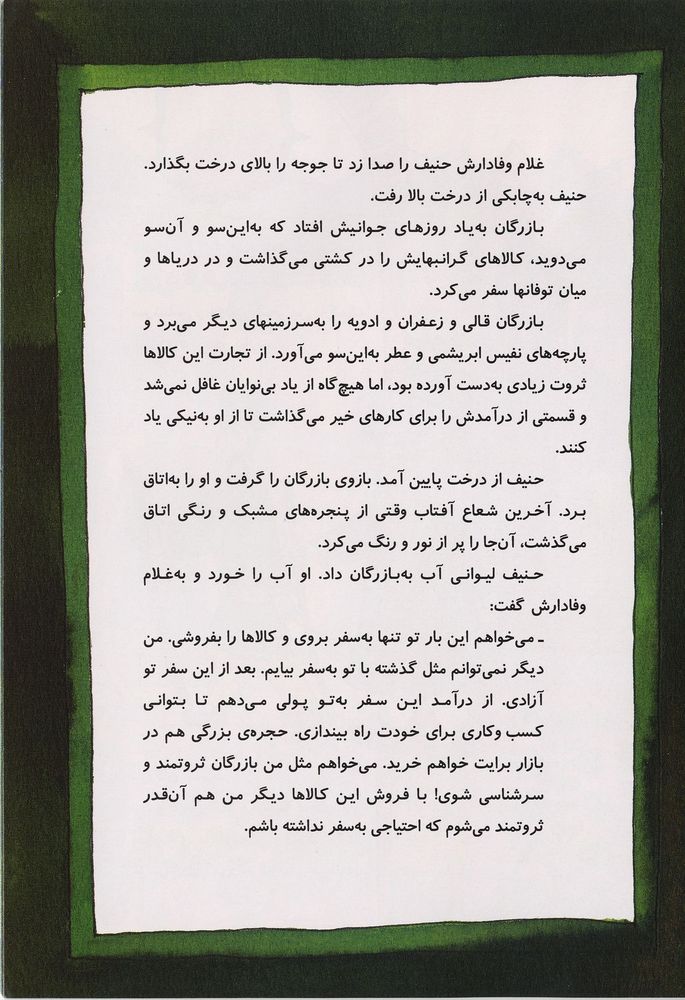 غلام وفادارش حنیف را صدا زد تا جوجه را بالای درخت بگذارد.
حنیف به‌چابکی از درخت بالا رفت.
بازرگان به‌یاد روزهای جوانیش افتاد که به‌این‌سو و آن‌سو
می‌دوید، کالاهای گرانبهایش را در کشتی می‌گذاشت و در دریاها و
میان توفانها سفر می‌کرد.
بازرگان قالی و زعفران و ادویه را به‌سرزمینهای دیگر می‌برد و
پارچه‌های نفیس ابریشمی و عطر به‌این‌سو می‌آورد. از تجارت این کالاها
ثروت زیادی به‌دست آورده بود، اما هیچ‌گاه از یاد بی‌نوایان غافل نمی‌شد
و قسمتی از درآمدش را برای کارهای خیر می‌گذاشت تا از او به‌نیکی یاد
کنند.
حنیف از درخت پایین آمد. بازوی بازرگان را گرفت و او را به‌اتاق
برد. آخرین شعاع آفتاب وقتی از پنجره‌های مشبک و رنگی اتاق
می‌گذشت، آن‌جا را پر از نور و رنگ می‌کرد.
حنیف لیوانی آب به‌بازرگان داد. او آب را خورد و به‌غلام
وفادارش گفت:
ـ می‌خواهم این بار تو تنها به‌سفر بروی و کالاها را بفروشی. من
دیگر نمی‌توانم مثل گذشته با تو به‌سفر بیایم. بعد از این سفر تو
آزادی. از درآمد این سفر به‌تو پولی می‌دهم تا بتوانی
کسب وکاری برای خودت راه بیندازی. حجره‌ی بزرگی هم در
بازار برایت خواهم خرید. می‌خواهم مثل من بازرگان ثروتمند و
سرشناسی شوی! با فروش این کالاها دیگر من هم آن‌قدر
ثروتمند می‌شوم که احتیاجی به‌سفر نداشته باشم.